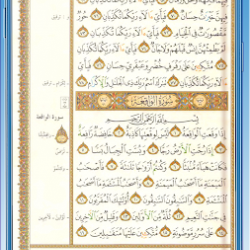 فِيهِنَّ خَيْرَاتٌ حِسَانٌ فَبِأَيِّ ءَالَاءِ رَبِّكُمَا تُكَذِّبَانِ
حُورٌ مَّقْصُورَاتٌ فِي الْخِيَامِ فَبِأَيِّ ءَالَاءِ رَبِّكُمَا تُكَذِّبَانِ
لَمْ يَطْمِثْهُنَّ إِنسٌ قَبْلَهُمْ وَلَا جَانٌّ فَبِأَيِّ ءَالَاءِ رَبِّكُمَا تُكَذِّبَانِ
مُتَّكِـِٔينَ عَلَىٰ رَفْرَفٍ خُضْرٍ وَعَبْقَرِيٍّ حِسَانٍ فَبِأَيِّ
ءَالَاءِ رَبِّكُمَا تُكَذِّبَانِ تَبَارَكَ اسْمُ رَبِّكَ ذِي الْجَلَالِ وَالْإِكْرَامِ
سُورَةُ الْوَاقِعَةِ
بِسْمِ اللَّهِ الرَّحْمَٰنِ الرَّحِيمِ
إِذَا وَقَعَتِ الْوَاقِعَةُ لَيْسَ لِوَقْعَتِهَا كَاذِبَةٌ خَافِضَةٌ رَّافِعَةٌ
إِذَا رُجَّتِ الْأَرْضُ رَجًّا وَبُسَّتِ الْجِبَالُ بَسًّا
فَكَانَتْ هَبَاءً مُّنبَثًّا وَكُنتُمْ أَزْوَاجًا ثَلَاثَةً فَأَصْحَابُ
الْمَيْمَنَةِ مَا أَصْحَابُ الْمَيْمَنَةِ وَأَصْحَابُ الْمَشْـَٔمَةِ مَا أَصْحَابُ
الْمَشْـَٔمَةِ وَالسَّابِقُونَ السَّابِقُونَ أُولَٰئِكَ الْمُقَرَّبُونَ
فِي جَنَّاتِ النَّعِيمِ ثُلَّةٌ مِّنَ الْأَوَّلِينَ وَقَلِيلٌ مِّنَ الْآخِرِينَ
عَلَىٰ سُرُرٍ مَّوْضُونَةٍ مُّتَّكِـِٔينَ عَلَيْهَا مُتَقَابِلِينَ
سورة الواقعة